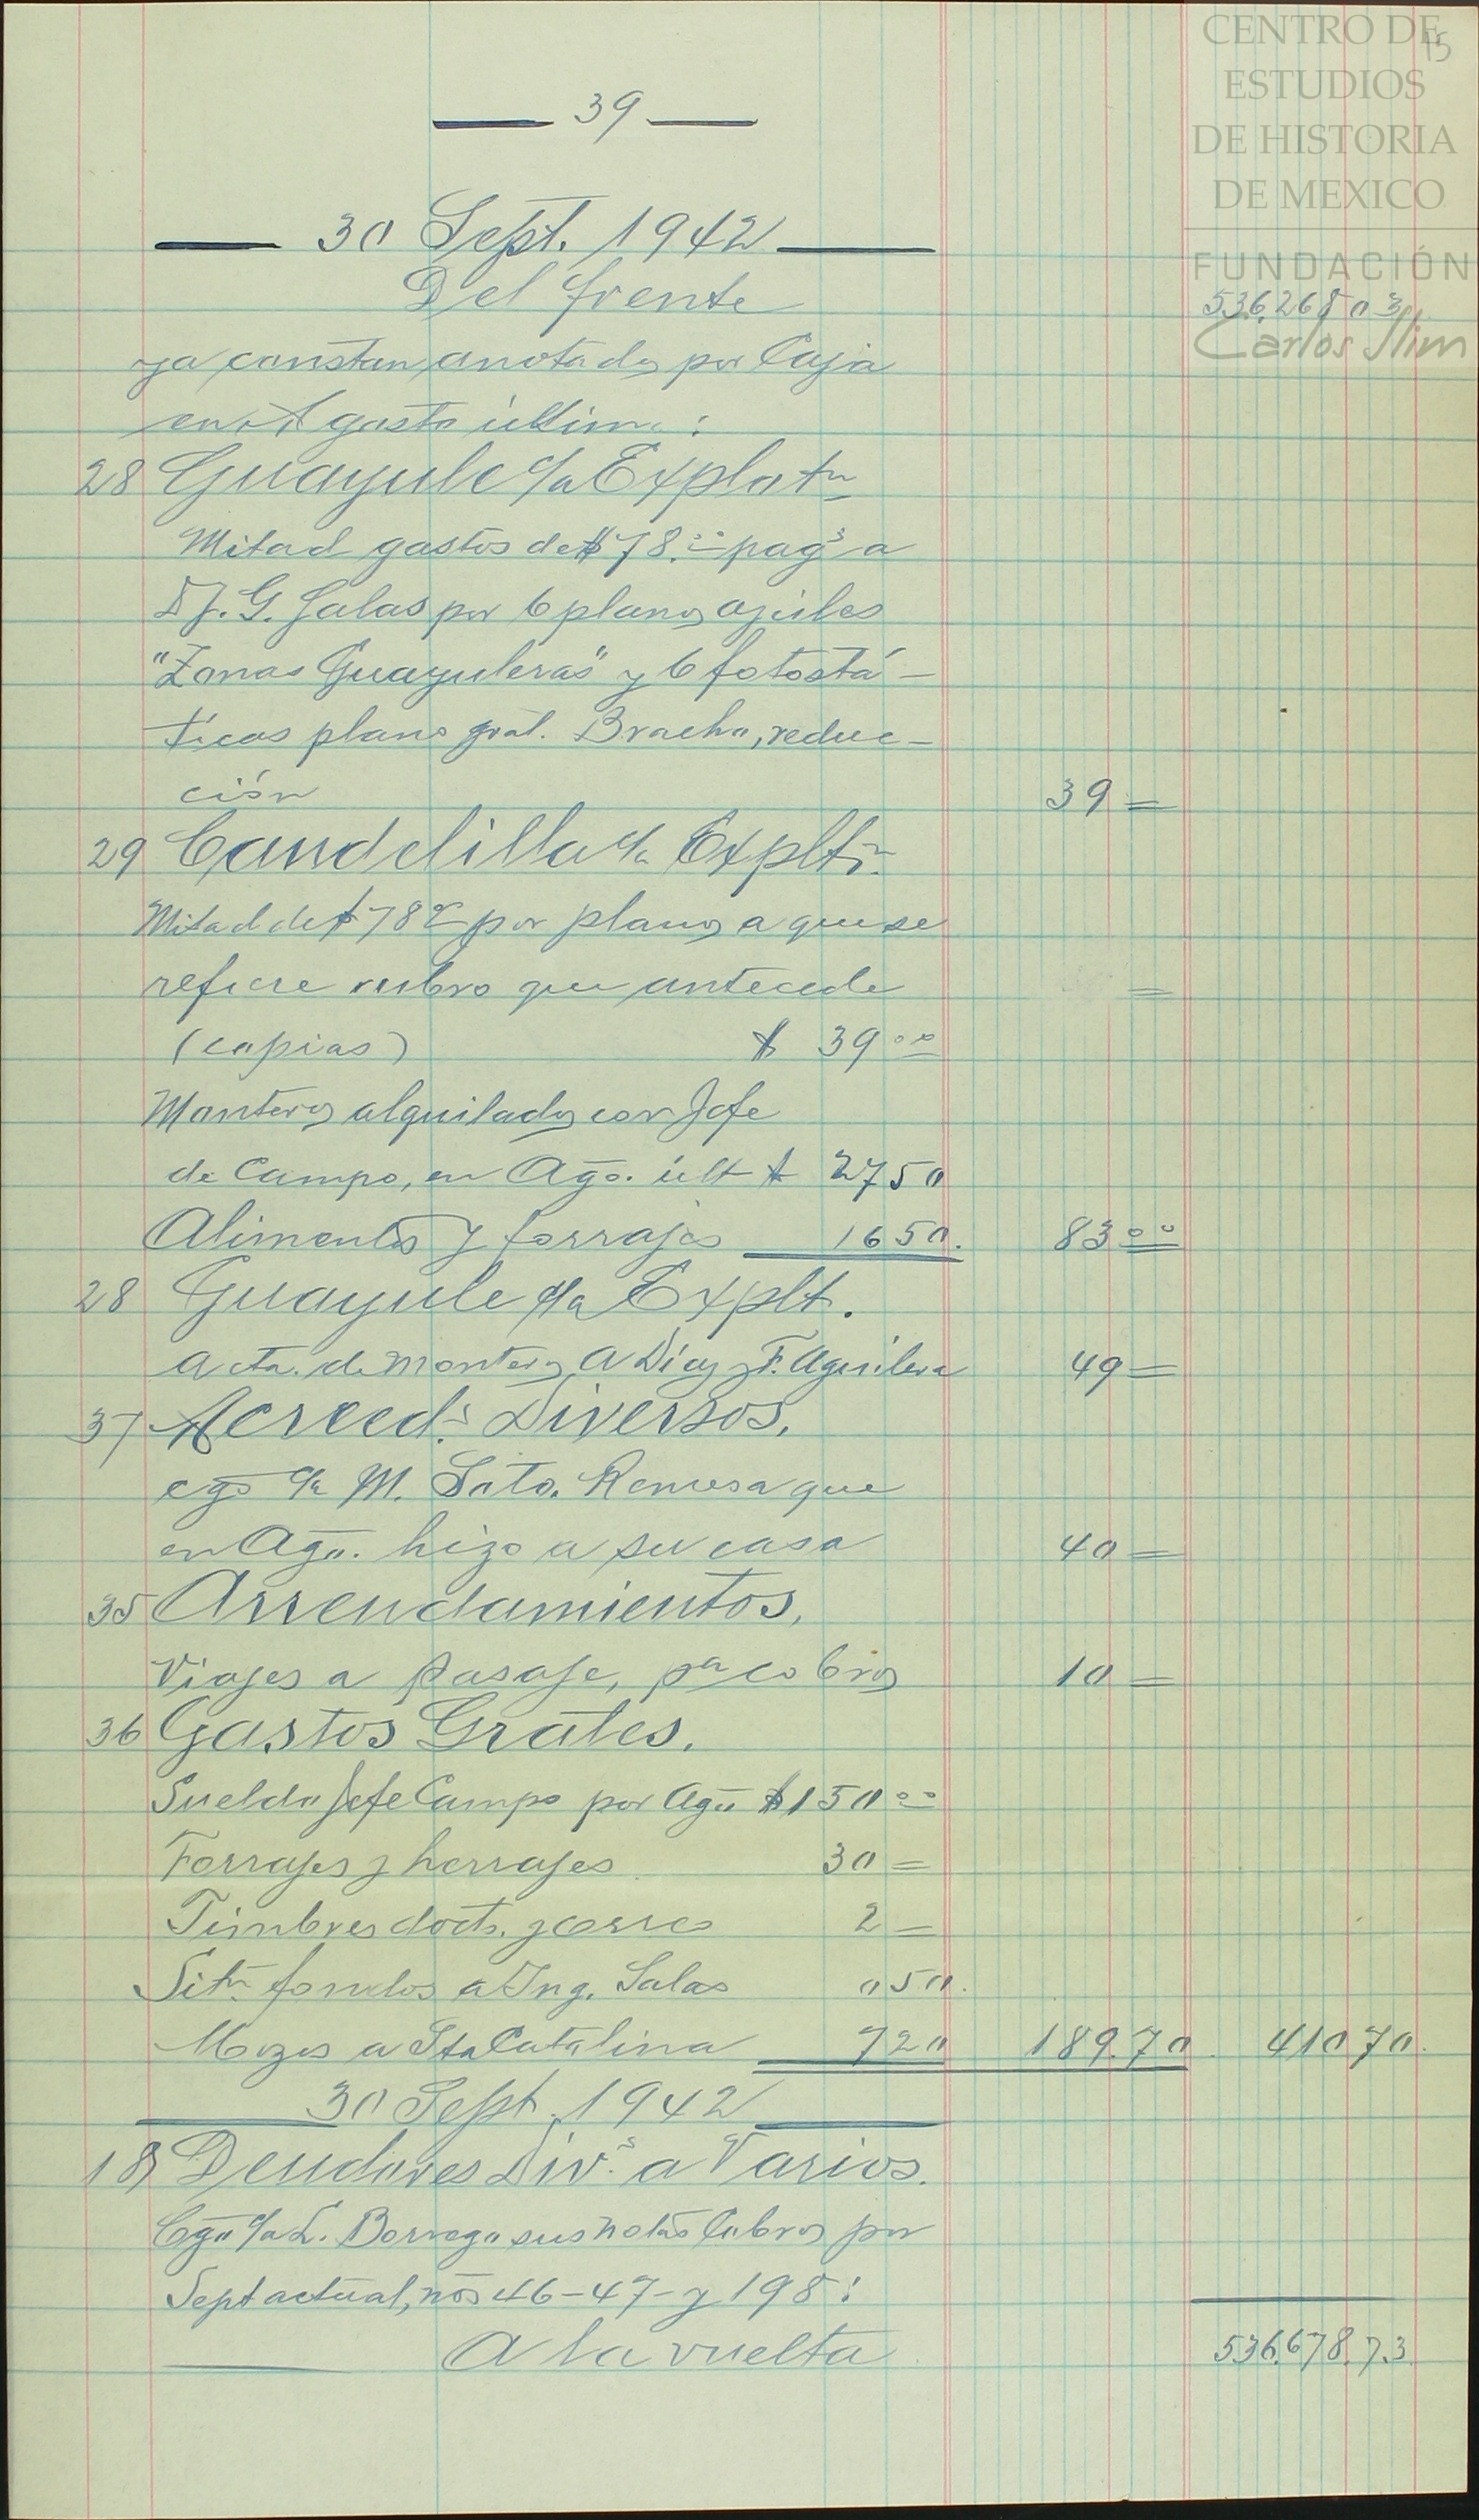 CENTRO DE
ESTUDIOS
DE HISTORIA
DE MEXICO
FUNDACIÓN
Carlos Slim
15
— 39 —
— 30 Sept. 1942 —
Del frente 536,268 03
ya constan anotados por Caja
en Agosto último:
28 Guayule c/a Explotn
Mitad gastos de $78.00 pags a
J. G. Salas por 6 planos azules
"Zonas Guayuleras" y 6 fotostá-
ticas plano gral. Bracho, reduc-
ción 39 =
29 Candelilla c/a Expltn.
Mitad de $78 00 por planos a que se
refiere rubro que antecede =
(copias) $ 39 00
Monteros alquilados con Jefe
de Campo, en Ago. últ $ 27 50
Alimentos y forrajes 16 50. 83 00
28 Guayule c/a Explt.
a cta. de monteros A Díaz y F. Aguilera 49 =
37 Acreeds. Diversos.
cgo c/a M. Soto. Remesa que
en Ago. hizo a su casa 40 =
35 Arrendamientos.
Viajes a Pasaje, pa cobros 10 =
36 Gastos Grales.
Sueldo Jefe Campo por Ago $150 00
Forrajes y herrajes 30 =
Timbres docts. y correo 2 =
Sitn. fondos a Ing. Salas 0 50.
Mozos a Sta Catalina 7 20 189.70 410 70.
30 Sept. 1942
18 Deudores Divs. a Varios.
Cgo c/a L. Borrego sus notas Cobros por
Sept actual, nos 46-47- y 198:
A la vuelta 536,678.73